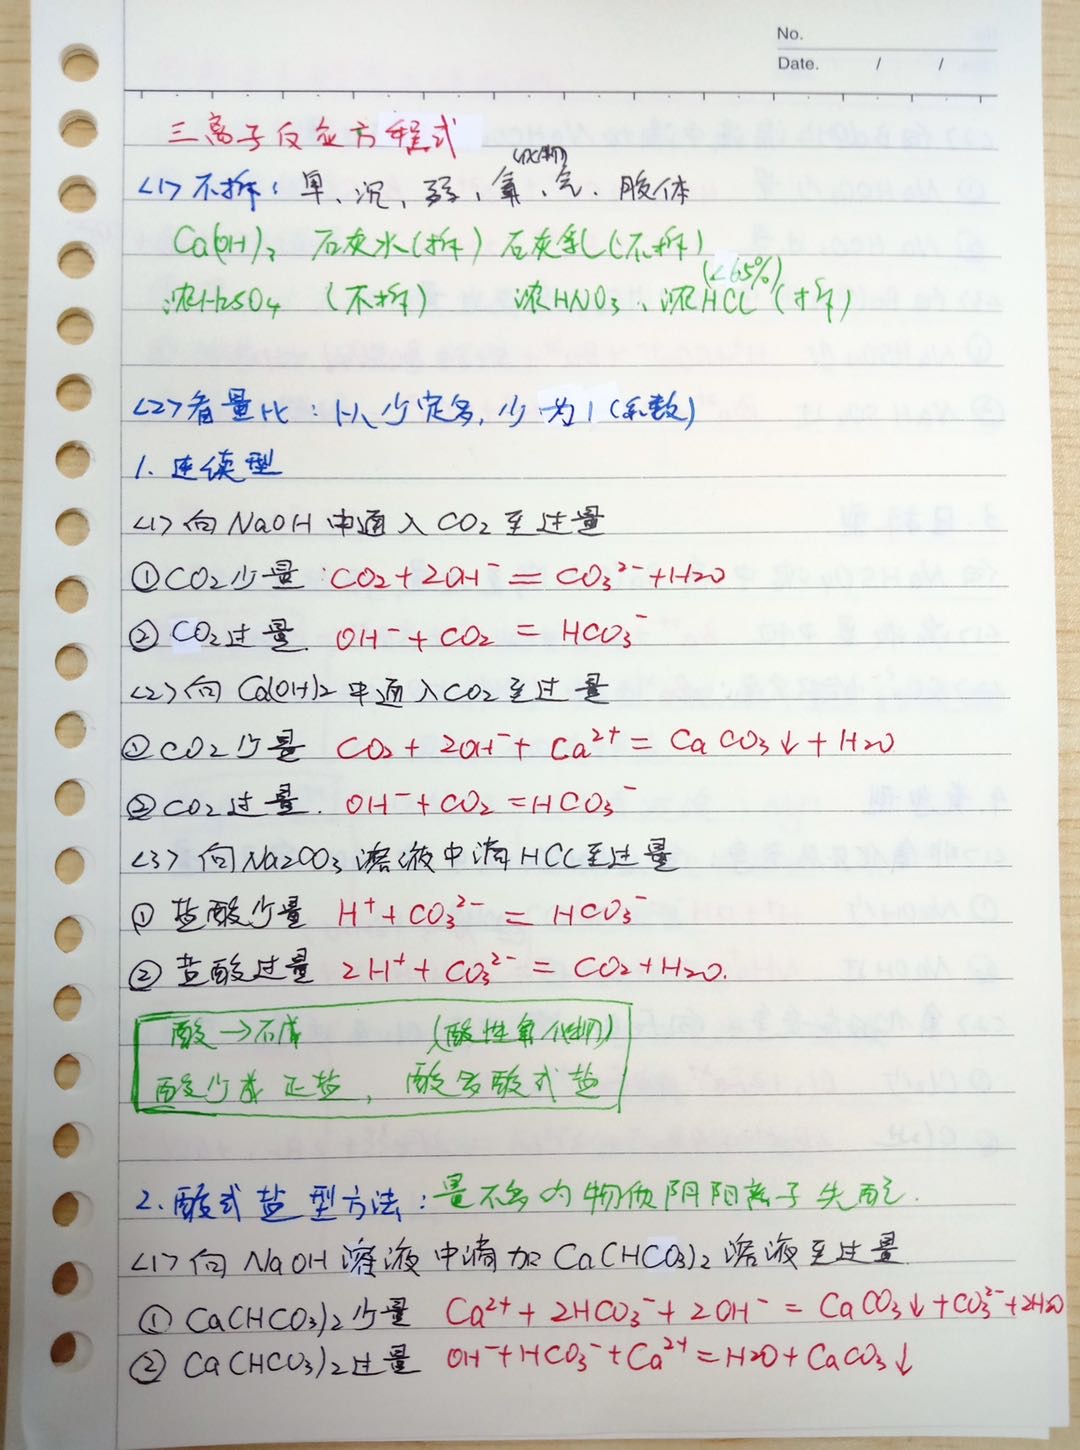 No.
Date. / /
三离子反应方程式
(化物)
<1>不拆：单、沉、弱、氧、气、胶体
Ca(OH)₂ 石灰水(拆) 石灰乳(不拆)
(<65%)
浓H₂SO₄ (不拆) 浓HNO₃、浓HCl (拆)
<2>看量比：以少定多，少为1(系数)
1. 连续型
<1>向NaOH中通入CO₂至过量
①CO₂少量：CO₂+2OH⁻=CO₃²⁻+H₂O
②CO₂过量. OH⁻+CO₂=HCO₃⁻
<2>向Ca(OH)₂中通入CO₂至过量
①CO₂少量 CO₂+2OH⁻+Ca²⁺=CaCO₃↓+H₂O
②CO₂过量. OH⁻+CO₂=HCO₃⁻
<3>向Na₂CO₃溶液中滴HCl至过量
①盐酸少量 H⁺+CO₃²⁻=HCO₃⁻
②盐酸过量 2H⁺+CO₃²⁻=CO₂+H₂O.
酸→石成 (酸性氧化物)
酸少成正盐，酸多酸式盐
2.酸式盐型方法：量不多的物质阴阳离子先配.
<1>向NaOH溶液中滴加Ca(HCO₃)₂溶液至过量.
①Ca(HCO₃)₂少量 Ca²⁺+2HCO₃⁻+2OH⁻=CaCO₃↓+CO₃²⁻+2H₂O
②Ca(HCO₃)₂过量 OH⁻+HCO₃⁻+Ca²⁺=H₂O+CaCO₃↓